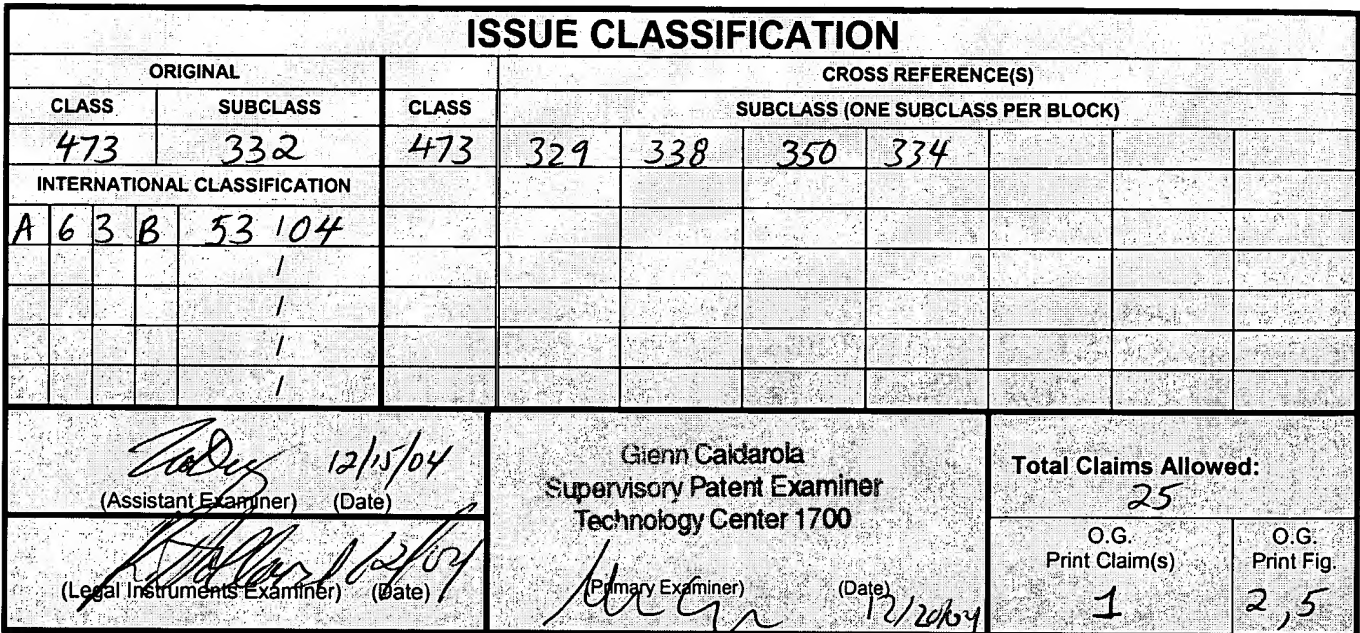 ISSUE CLASSIFICATION
ORIGINAL CROSS REFERENCE(S)
CLASS SUBCLASS CLASS SUBCLASS (ONE SUBCLASS PER BLOCK)
473 332 473 329 338 350 334
INTERNATIONAL CLASSIFICATION
A 6 3 B 53 / 04
/
/
/
/
12/15/04
(Assistant Examiner) (Date)
12/04
(Legal Instruments Examiner) (Date)
Glenn Caldarola
Supervisory Patent Examiner
Technology Center 1700
(Primary Examiner) (Date)
12/20/04
Total Claims Allowed:
25
O.G.
Print Claim(s)
1
O.G.
Print Fig.
2, 5